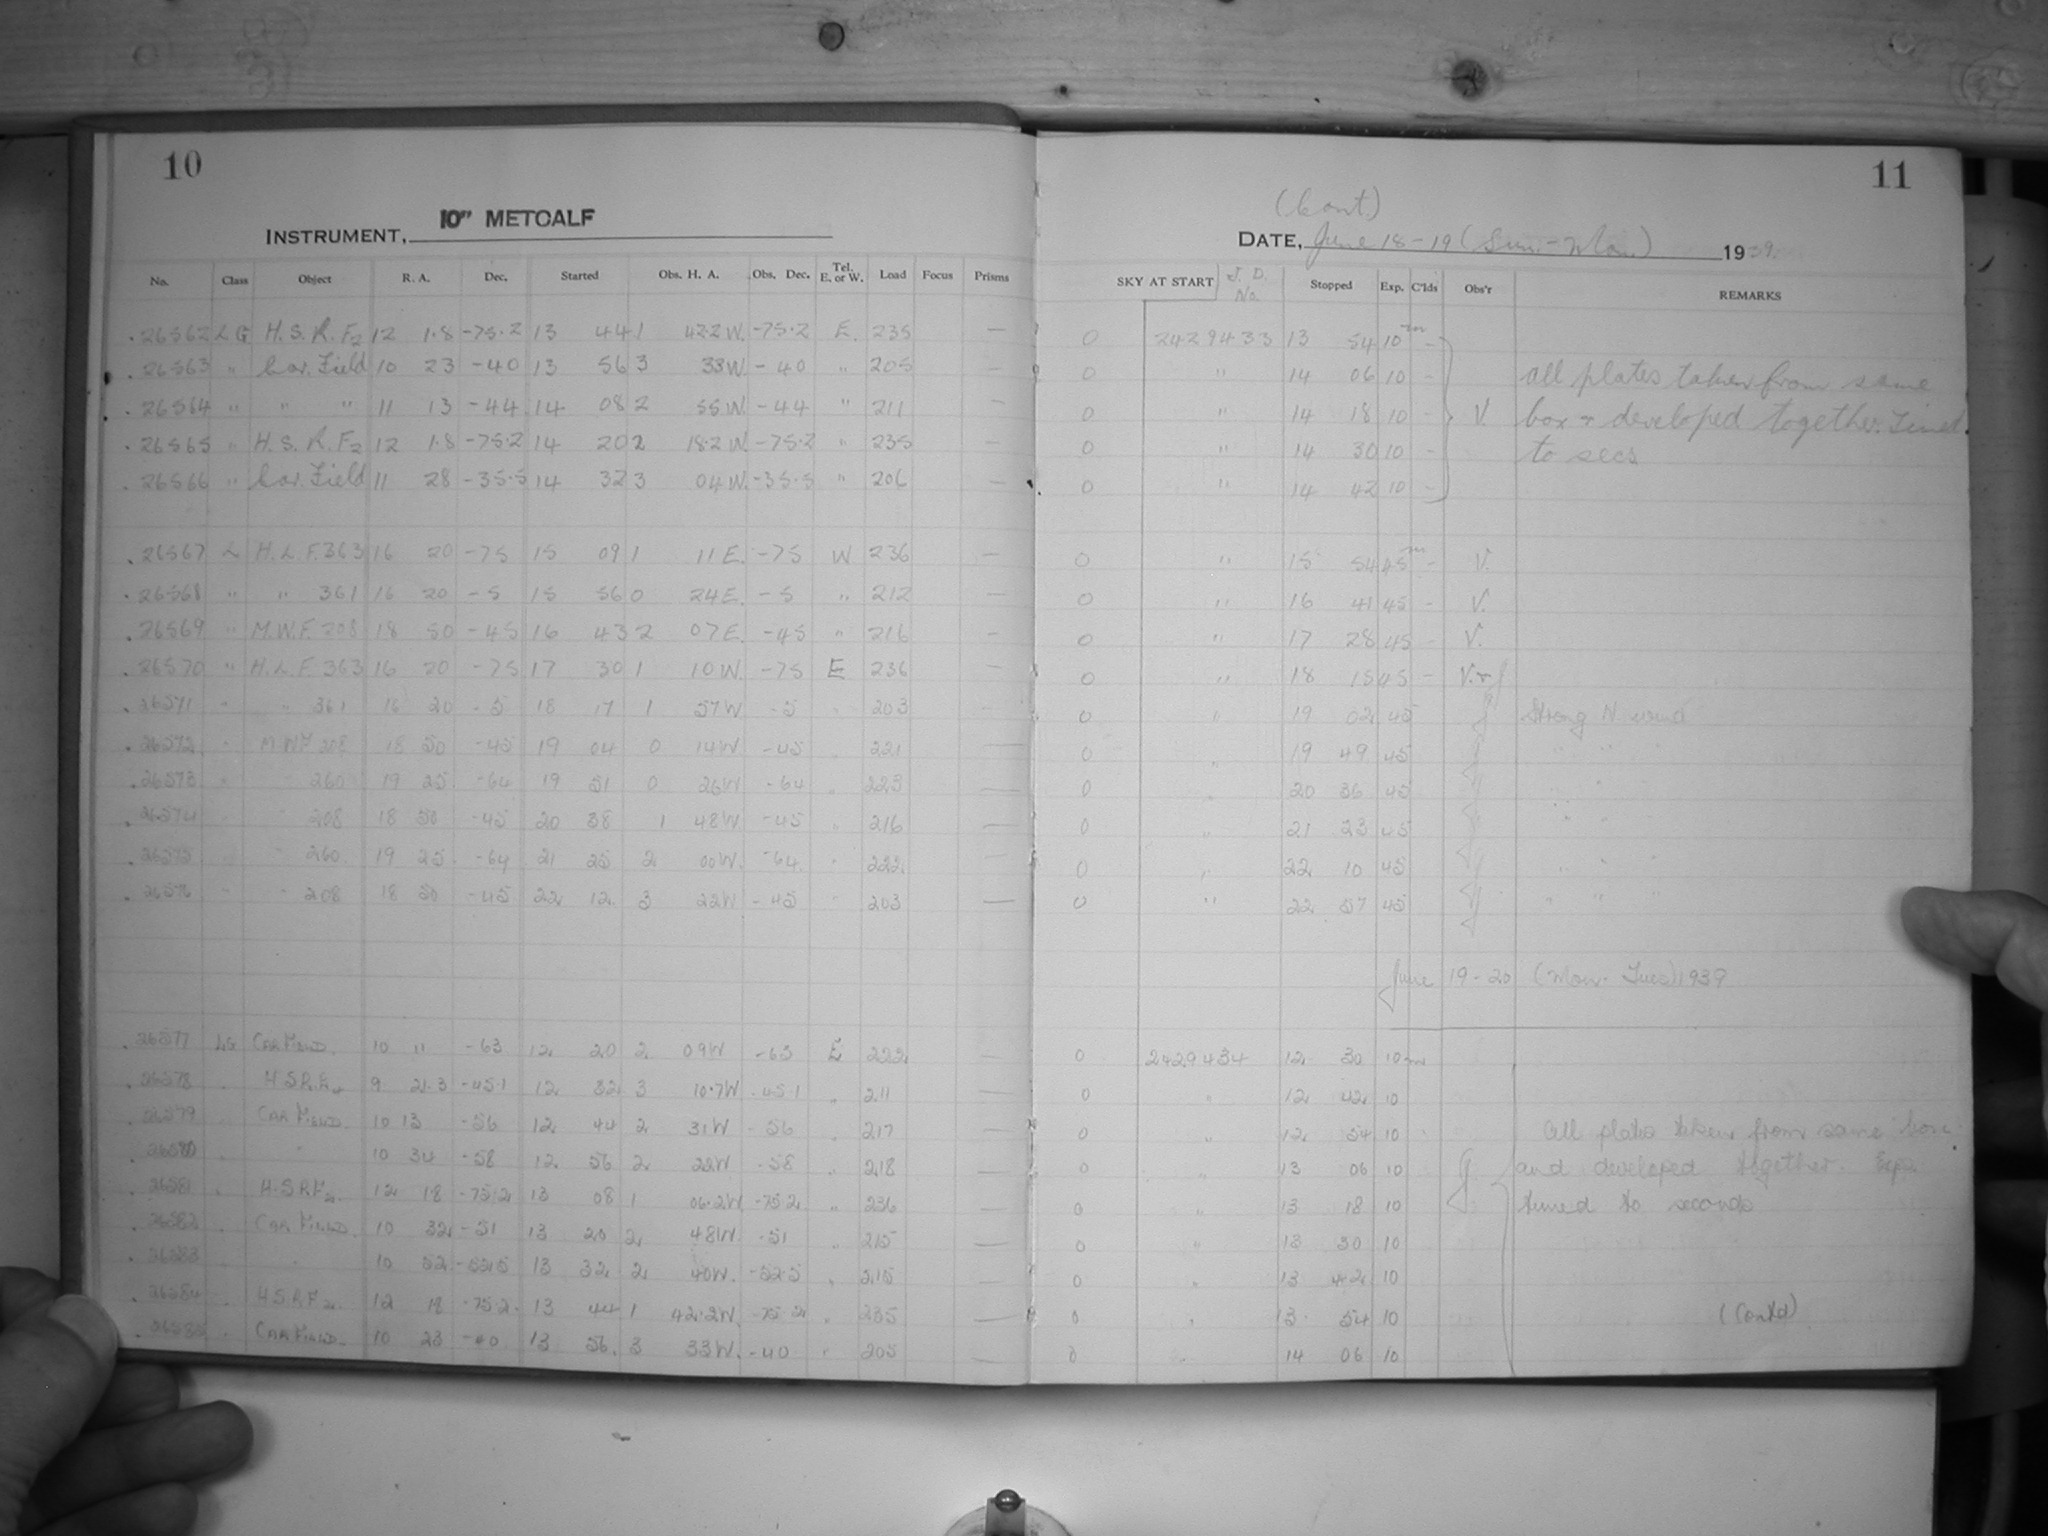 10
INSTRUMENT, 10" METCALF
No. Class Object R. A. Dec. Started Obs. H. A. Obs. Dec. Tel. E. or W. Load Focus Prisms
26562 LG H.S.R.F2 12 1.8 -75.2 13 44 1 42.2W. -75.2 E. 235 —
26563 " Car. Field 10 23 -40 13 56 3 33W. -40 " 205 —
26564 " " " 11 13 -44 14 08 2 55W. -44 " 211 —
26565 " H.S.R.F2 12 1.8 -75.2 14 20 2 18.2W. -75.2 " 235 —
26566 " Car. Field 11 28 -35.5 14 32 3 04W. -35.5 " 206 —
26567 L H.L.F. 363 16 20 -75 15 09 1 11E. -75 W 236 —
26568 " " 361 16 20 -5 15 56 0 24E. -5 " 212 —
26569 " M.W.F. 208 18 50 -45 16 43 2 07E. -45 " 216 —
26570 " H.L.F. 363 16 20 -75 17 30 1 10W. -75 E 236 —
26571 " " 361 16 20 -5 18 17 1 57W -5 " 203 —
26572 " M.W.F 208 18 50 -45 19 04 0 14W -45 " 221 —
26573 " " 260 19 25 -64 19 51 0 26W -64 " 223 —
26574 " " 208 18 50 -45 20 38 1 48W -45 " 216 —
26575 " " 260 19 25 -64 21 25 2 00W. -64 " 222 —
26576 " " 208 18 50 -45 22 12 3 22W -45 " 203 —
26577 LG CAR FIELD 10 11 -63 12 20 2 09W -63 E 222 —
26578 " H.S.R.F2 9 21.3 -45.1 12 32 3 10.7W -45.1 " 211 —
26579 " CAR FIELD 10 13 -56 12 44 2 31W -56 " 217 —
26580 " " 10 34 -58 12 56 2 22W -58 " 218 —
26581 " H.S.R.F2 12 1.8 -75.2 13 08 1 06.2W -75.2 " 236 —
26582 " CAR FIELD 10 32 -51 13 20 2 48W -51 " 215 —
26583 " " 10 52 -52.5 13 32 2 40W. -52.5 " 215 —
26584 " H.S.R.F2 12 1.8 -75.2 13 44 1 42.2W. -75.2 " 235 —
26585 " CAR FIELD 10 23 -40 13 56 3 33W. -40 " 205 —
11
(Cont.)
DATE, June 18-19 (Sun.-Mon.) 1939.
SKY AT START J. D. No. Stopped Exp. C'lds Obs'r REMARKS
0 2429433 13 54 10m -
0 " 14 06 10 - all plates taken from same
0 " 14 18 10 - V. box & developed together. Timed
0 " 14 30 10 - to secs
0 " 14 42 10 -
0 " 15 54 45m - V.
0 " 16 41 45 - V.
0 " 17 28 45 - V.
0 " 18 15 45 - V. & J
0 " 19 02 45 J Strong N wind
0 " 19 49 45 J " " "
0 " 20 36 45 J " "
0 " 21 23 45 J " "
0 " 22 10 45 J " " "
0 " 22 57 45 J " " "
June 19-20 (Mon-Tues) 1939
0 2429434 12 30 10m
0 " 12 42 10
0 " 12 54 10 All plates taken from same box
0 " 13 06 10 J and developed together. Exp.
0 " 13 18 10 timed to seconds
0 " 13 30 10
0 " 13 42 10
0 " 13 54 10 (Contd)
0 " 14 06 10